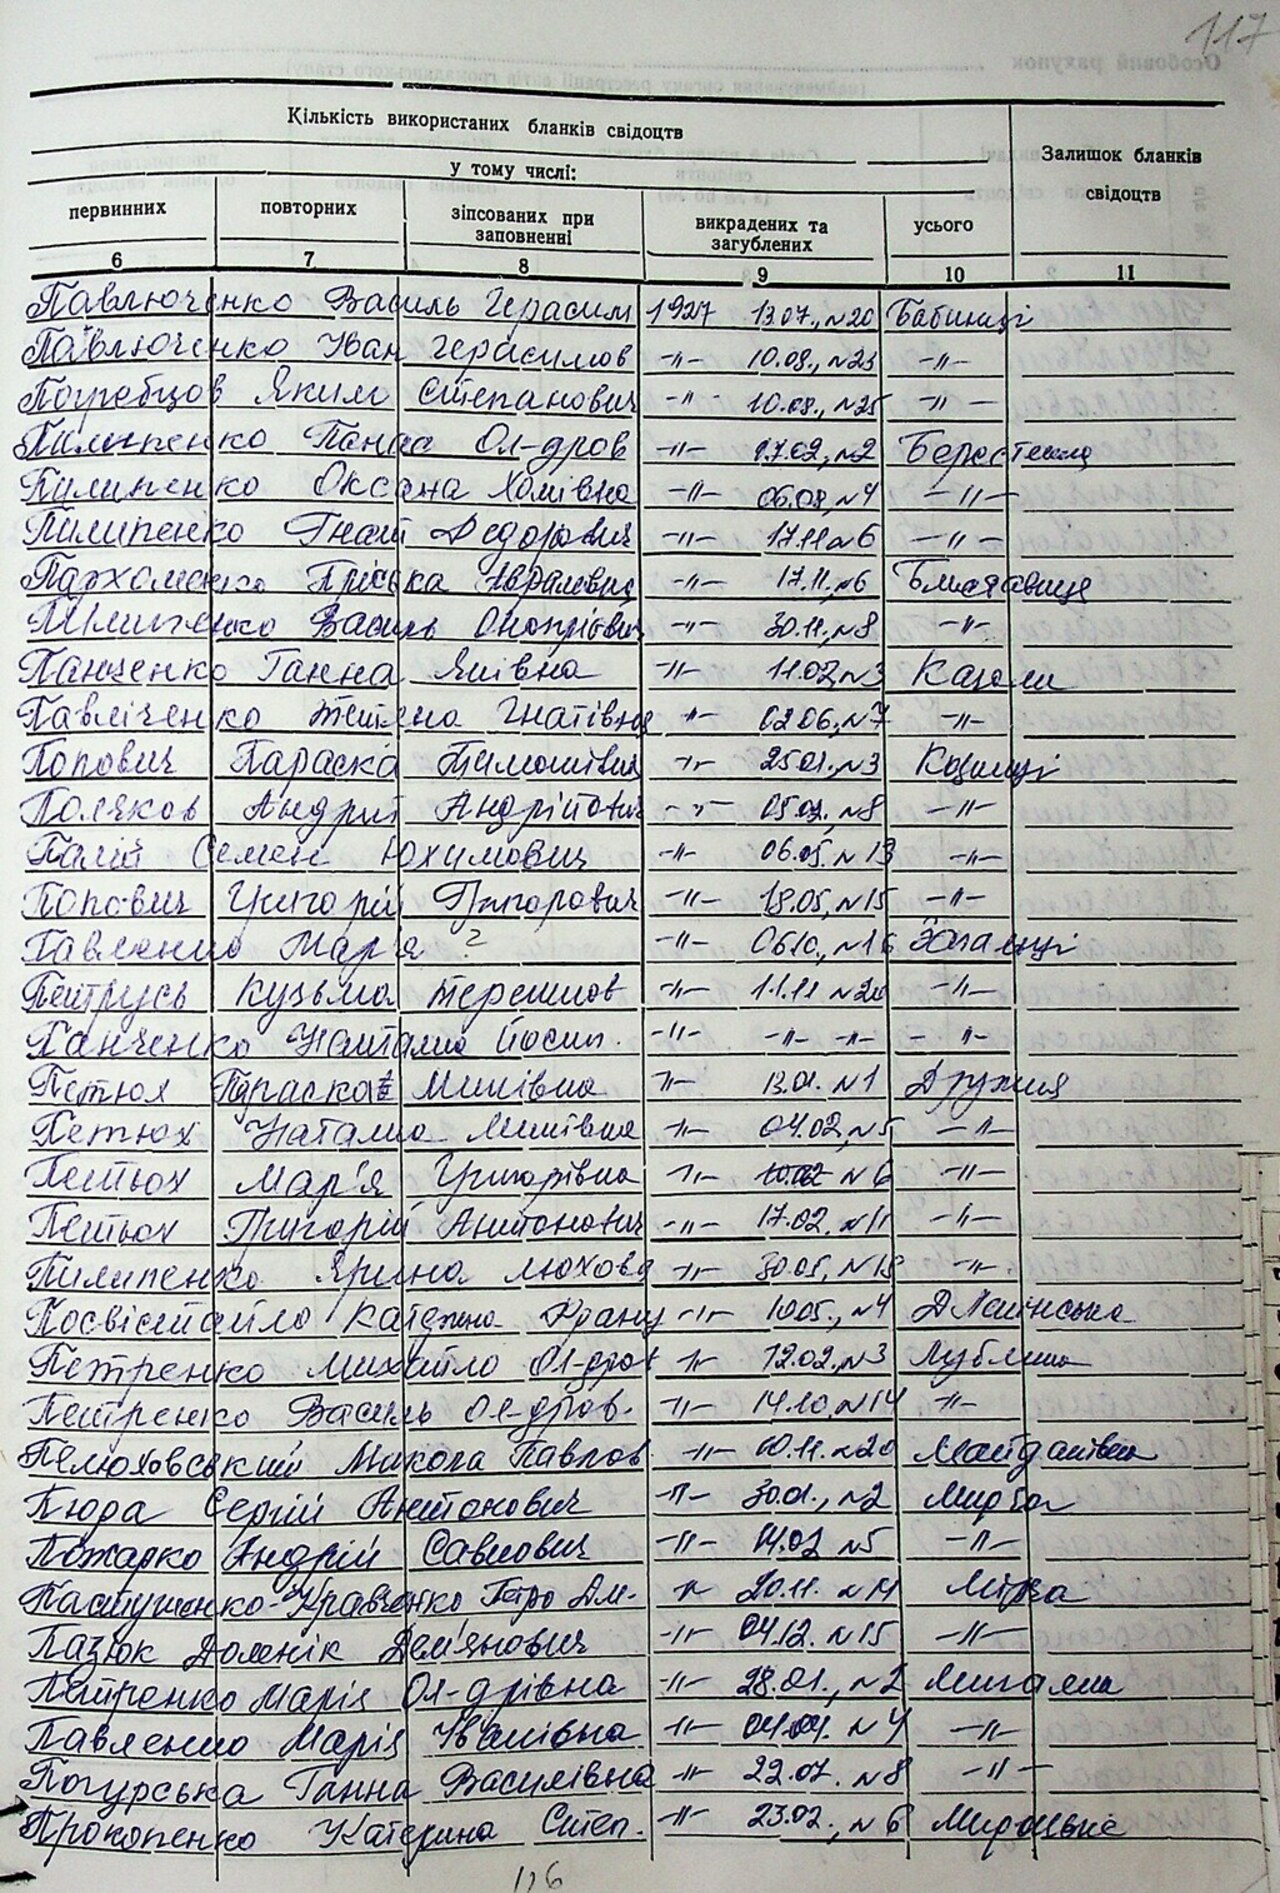 117
Кількість використаних бланків свідоцтв
Залишок бланків свідоцтв
у тому числі:
первинних
повторних
зіпсованих при заповненні
викрадених та загублених
усього
6 7 8 9 10 11
Павлюченко Василь Герасим 1927 13.07., №20 Бабинці
Павлюченко Іван Герасимов -"- 10.08., №23 -"-
Погребцов Яким Степанович -"- 10.08., №25 -"-
Пилипенко Панас Ол-дров -"- 17.02., №2
Пилипенко Оксана Хомівна -"- 06.08, №4 -"-
Пилипенко Гнат Федорович -"- 17.11 №6 -"-
Пархоменко Пріська -"- 17.11., №6 Блиставиця
Пилипенко Василь Онопрієвич -"- 30.11., №8 -"-
Панченко Ганна -"- 11.02, №3
Павліченко Тетяна Гнатівна -"- 02.06., №7 -"-
Попович Параска Тимошівна -"- 25.01., №3 Козинці
Поляков Андрій Андрійович -"- №8 -"-
Палій Семен Юхимович -"- 06.05. №13 -"-
Попович Григорій Григорович -"- 18.05., №15 -"-
Павленко Мар'я ? -"- 06.10., №16
Петрусь Кузьма Терешков -"- 11.11 №20 -"-
Панченко Наталія Йосип. -"- -"- -"- -"-
Петюх Параска -"- 13.01. №1 Дружня
Петюх Наталія -"- 04.02, №5 -"-
Петюх Мар'я Григорівна -"- 10.02 №6 -"-
Петюх Григорій Антонович -"- 17.02. №11 -"-
Пилипенко Ярина -"- 30.05, №18 -"-
Посвістайло Катерина Франц -"- 10.05., №4
Петренко Михайло Ол-дров -"- 12.02. №3
Петренко Василь Ол-дров. -"- 14.10, №14 -"-
Пелюховський Микола Павлов. -"- 10.11. №20 Майданівка
Пюра Сергій Антонович -"- 30.01., №2 Мирча
Пожарко Андрій Савович -"- №5 -"-
Пастушенко-Кравченко Петро Дм. -"- 20.11. №14 Мірча
Пазюк Доменік Дем'янович -"- 04.12. №15 -"-
Петренко Марія Ол-дрівна -"- 28.01., №2 Мигалки
Павленко Марія Іванівна -"- 04.04. №4 -"-
Погурська Ганна Василівна -"- 22.07. №8 -"-
Прокопенко Катерина Степ. -"- 23.02., №6 Мироцьке
126